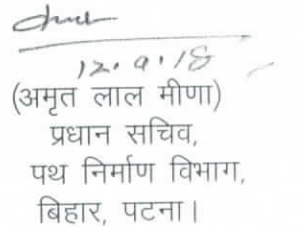 12.9.18
(अमृत लाल मीणा)
प्रधान सचिव,
पथ निर्माण विभाग,
बिहार, पटना।